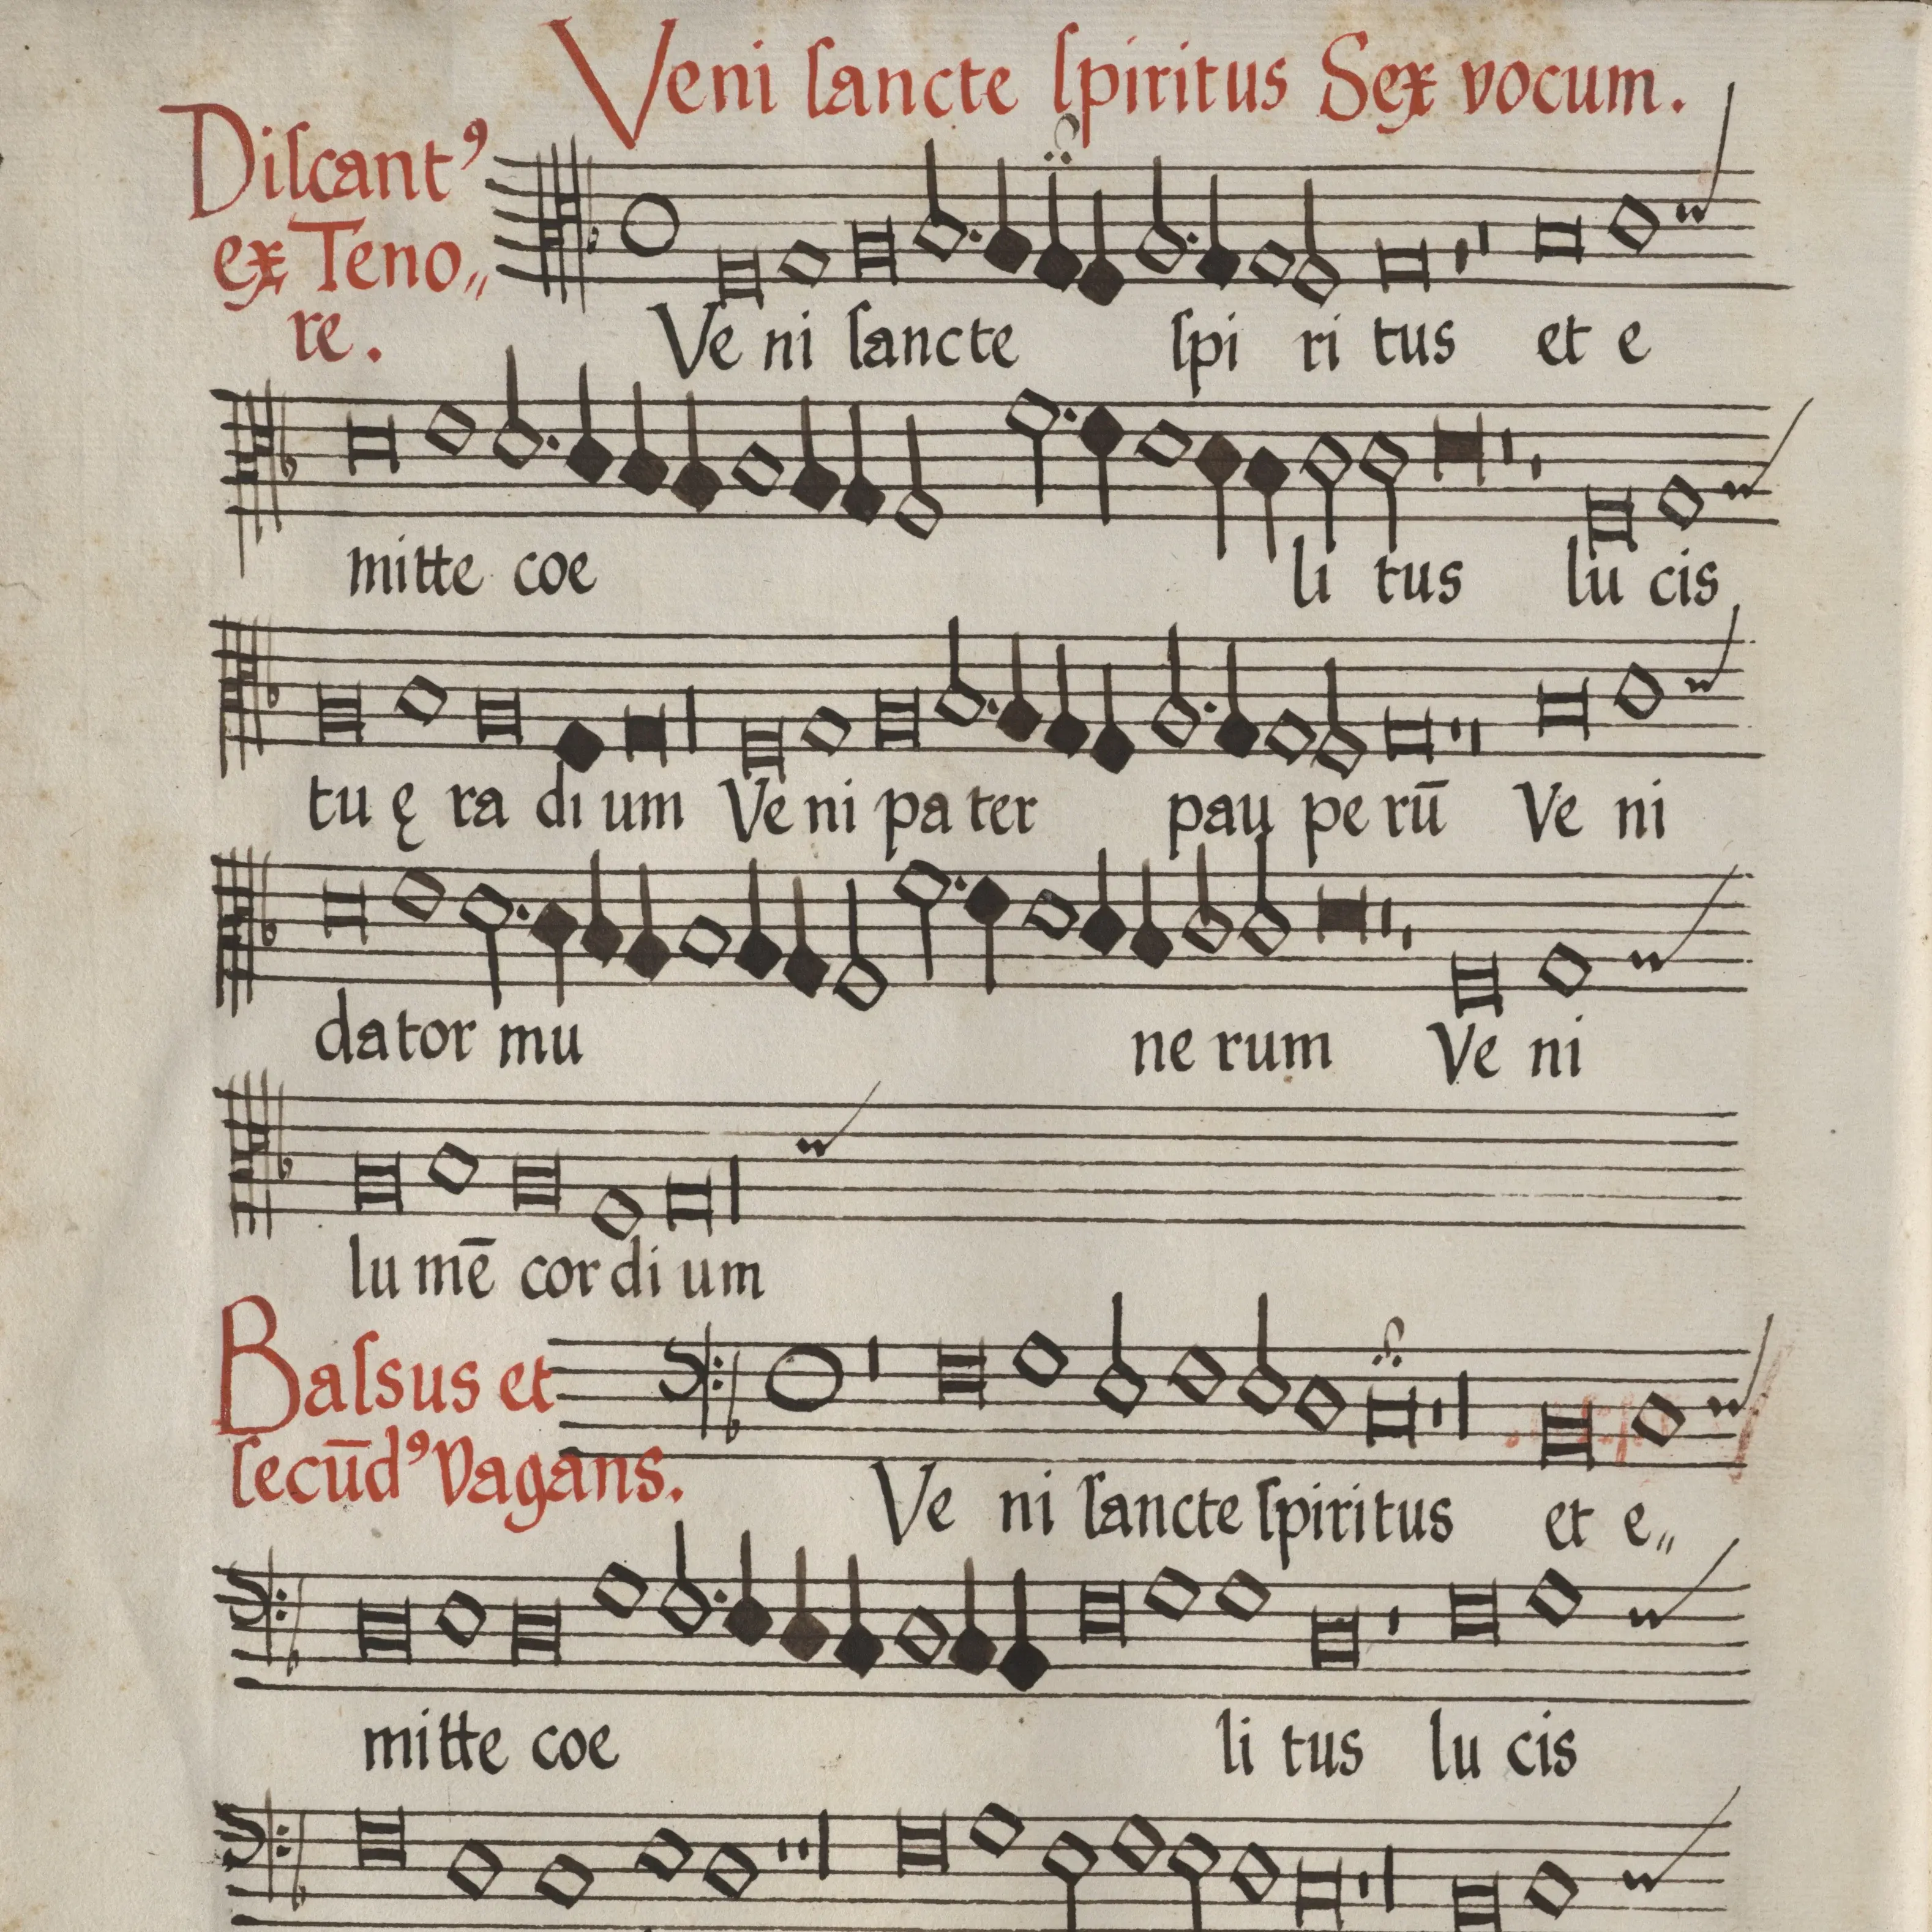 Veni ſancte ſpiritus Sex vocum.
Diſcantꝰ
ex Teno„
re.
Ve ni ſancte ſpi ri tus et e
mitte coe li tus lu cis
tu ę ra di um Ve ni pa ter pau pe rū Ve ni
dator mu ne rum Ve ni
lu mē cor di um
Baſsus et
ſecūdꝰ Vagans.
Ve ni ſancte ſpiritus et e„
mitte coe li tus lu cis